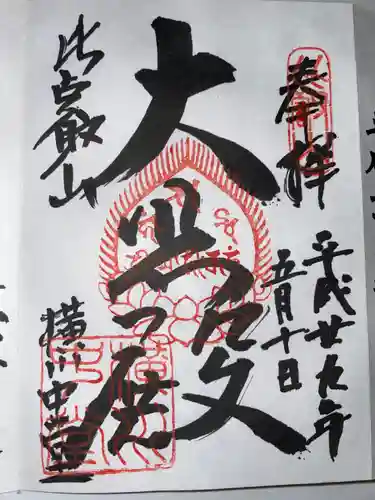 奉拝
平成廿九年
五月十日
大悲殿
比叡山
横川中堂